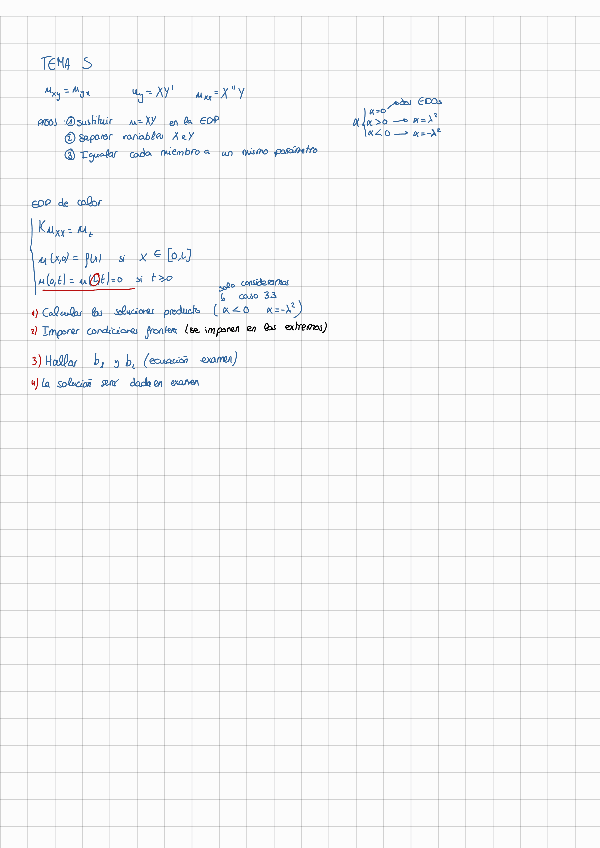 TEMA 5
u_xy = u_yx u_y = XY' u_xx = X''Y
PASOS ① sustituir u=XY en la EDP
② separar variables X e Y
③ Igualar cada miembro a un mismo parámetro
α { α=0 → dos EDOs
α>0 → α=λ²
α<0 → α=-λ²
EDP de calor
K u_xx = u_t
u(x,0) = f(x) si x ∈ [0,L]
u(0,t) = u(L,t)=0 si t≥0
1) Calcular las soluciones producto (α<0 α=-λ²)
solo consideramos
caso 3.3
2) Imponer condiciones frontera (se imponen en los extremos)
3) Hallar y (ecuación examen)
4) La solución será dada en examen